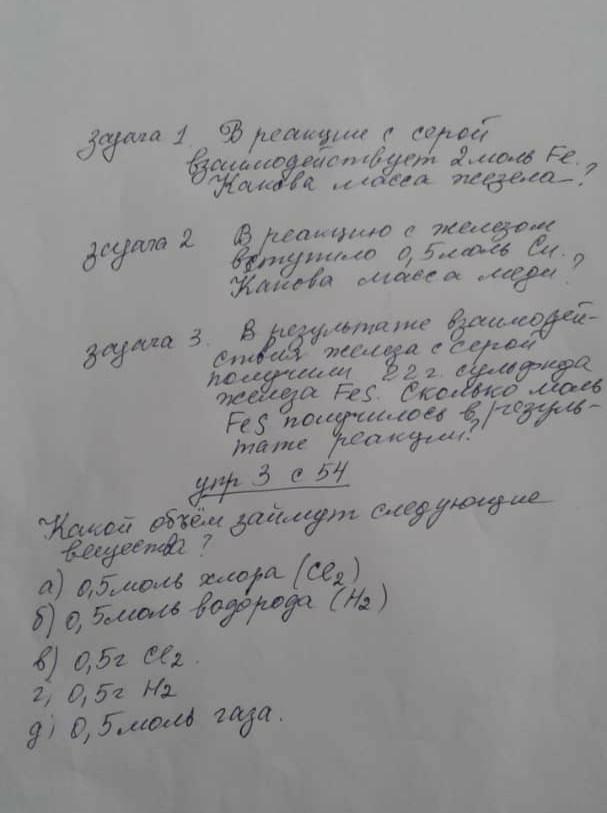 задача 1. В реакцие с серой
взаимодействует 2 моль Fe.
Какова масса жезела?
задача 2 В реакцию с железом
вступило 0,5 моль Cu.
Какова масса меди?
задача 3. В результате взаимодей-
ствия железа с серой
получили 22 г. сульфида
железа FeS. Сколько моль
FeS получилось в резуль-
тате реакции?
упр 3 с 54
Какой объём займут следующие
вещества?
а) 0,5 моль хлора (Cl₂)
б) 0,5 моль водорода (H₂)
в) 0,5г Cl₂.
г) 0,5г H₂
д) 0,5 моль газа.